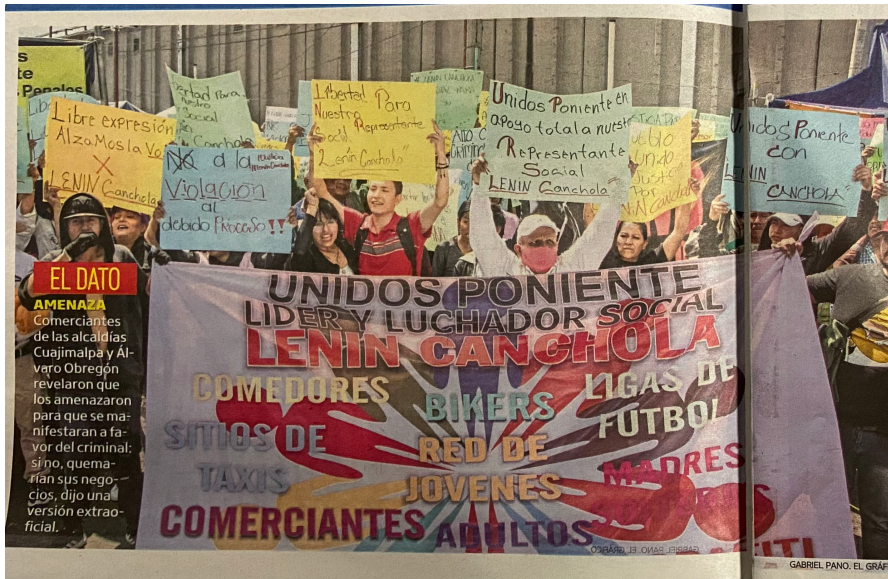 s
te
Penales
Libre expresión
Alzamos la Vo
X
LENIN Canchola
ertad Para
Nuestro
Social
Canchola
NO a la
VIOLACION
al
debido PROCESO!!
Libertad Para
Nuestro Representante
Social
"Lenin Canchola"
LENIN CANCHOLA
Unidos Poniente en
apoyo total a nuestr
Representante
Social
LENIN Canchola
Pueblo
unido
Por
Unidos Poniente
con
LENIN CANCHOLA"
EL DATO
AMENAZA
Comerciantes
de las alcaldías
Cuajimalpa y Ál-
varo Obregón
revelaron que
los amenazaron
para que se ma-
nifestaran a fa-
vor del criminal:
si no, quema-
rían sus nego-
cios, dijo una
versión extrao-
ficial.
UNIDOS PONIENTE
LIDER Y LUCHADOR SOCIAL
LENIN CANCHOLA
COMEDORES
BIKERS
LIGAS DE
FÚTBOL
SITIOS DE
TAXIS
RED DE
JOVENES
MADRES
COMERCIANTES
ADULTOS
GABRIEL PANO. EL GRÁFICO
GABRIEL PANO. EL GRÁF